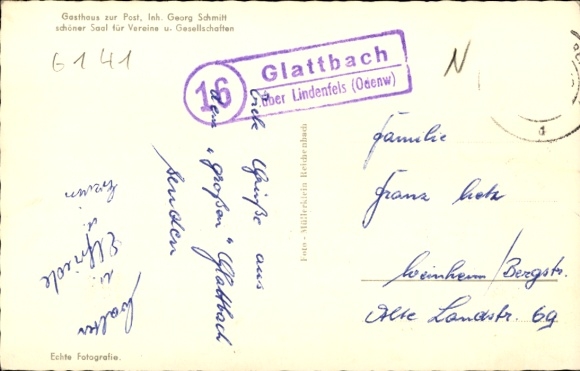 Gasthaus zur Post, Inh. Georg Schmitt
schöner Saal für Vereine u. Gesellschaften
6141
N
16
Glattbach
über Lindenfels (Odenw)
Viele Grüße aus
dem „großen“ Glattbach
senden
Erwin
u.
Elfriede
u.
Walter
Foto - Müllerklein Reichenbach
Familie
Franz
Weinheim/Bergstr.
Alte Landstr. 69
Echte Fotografie.